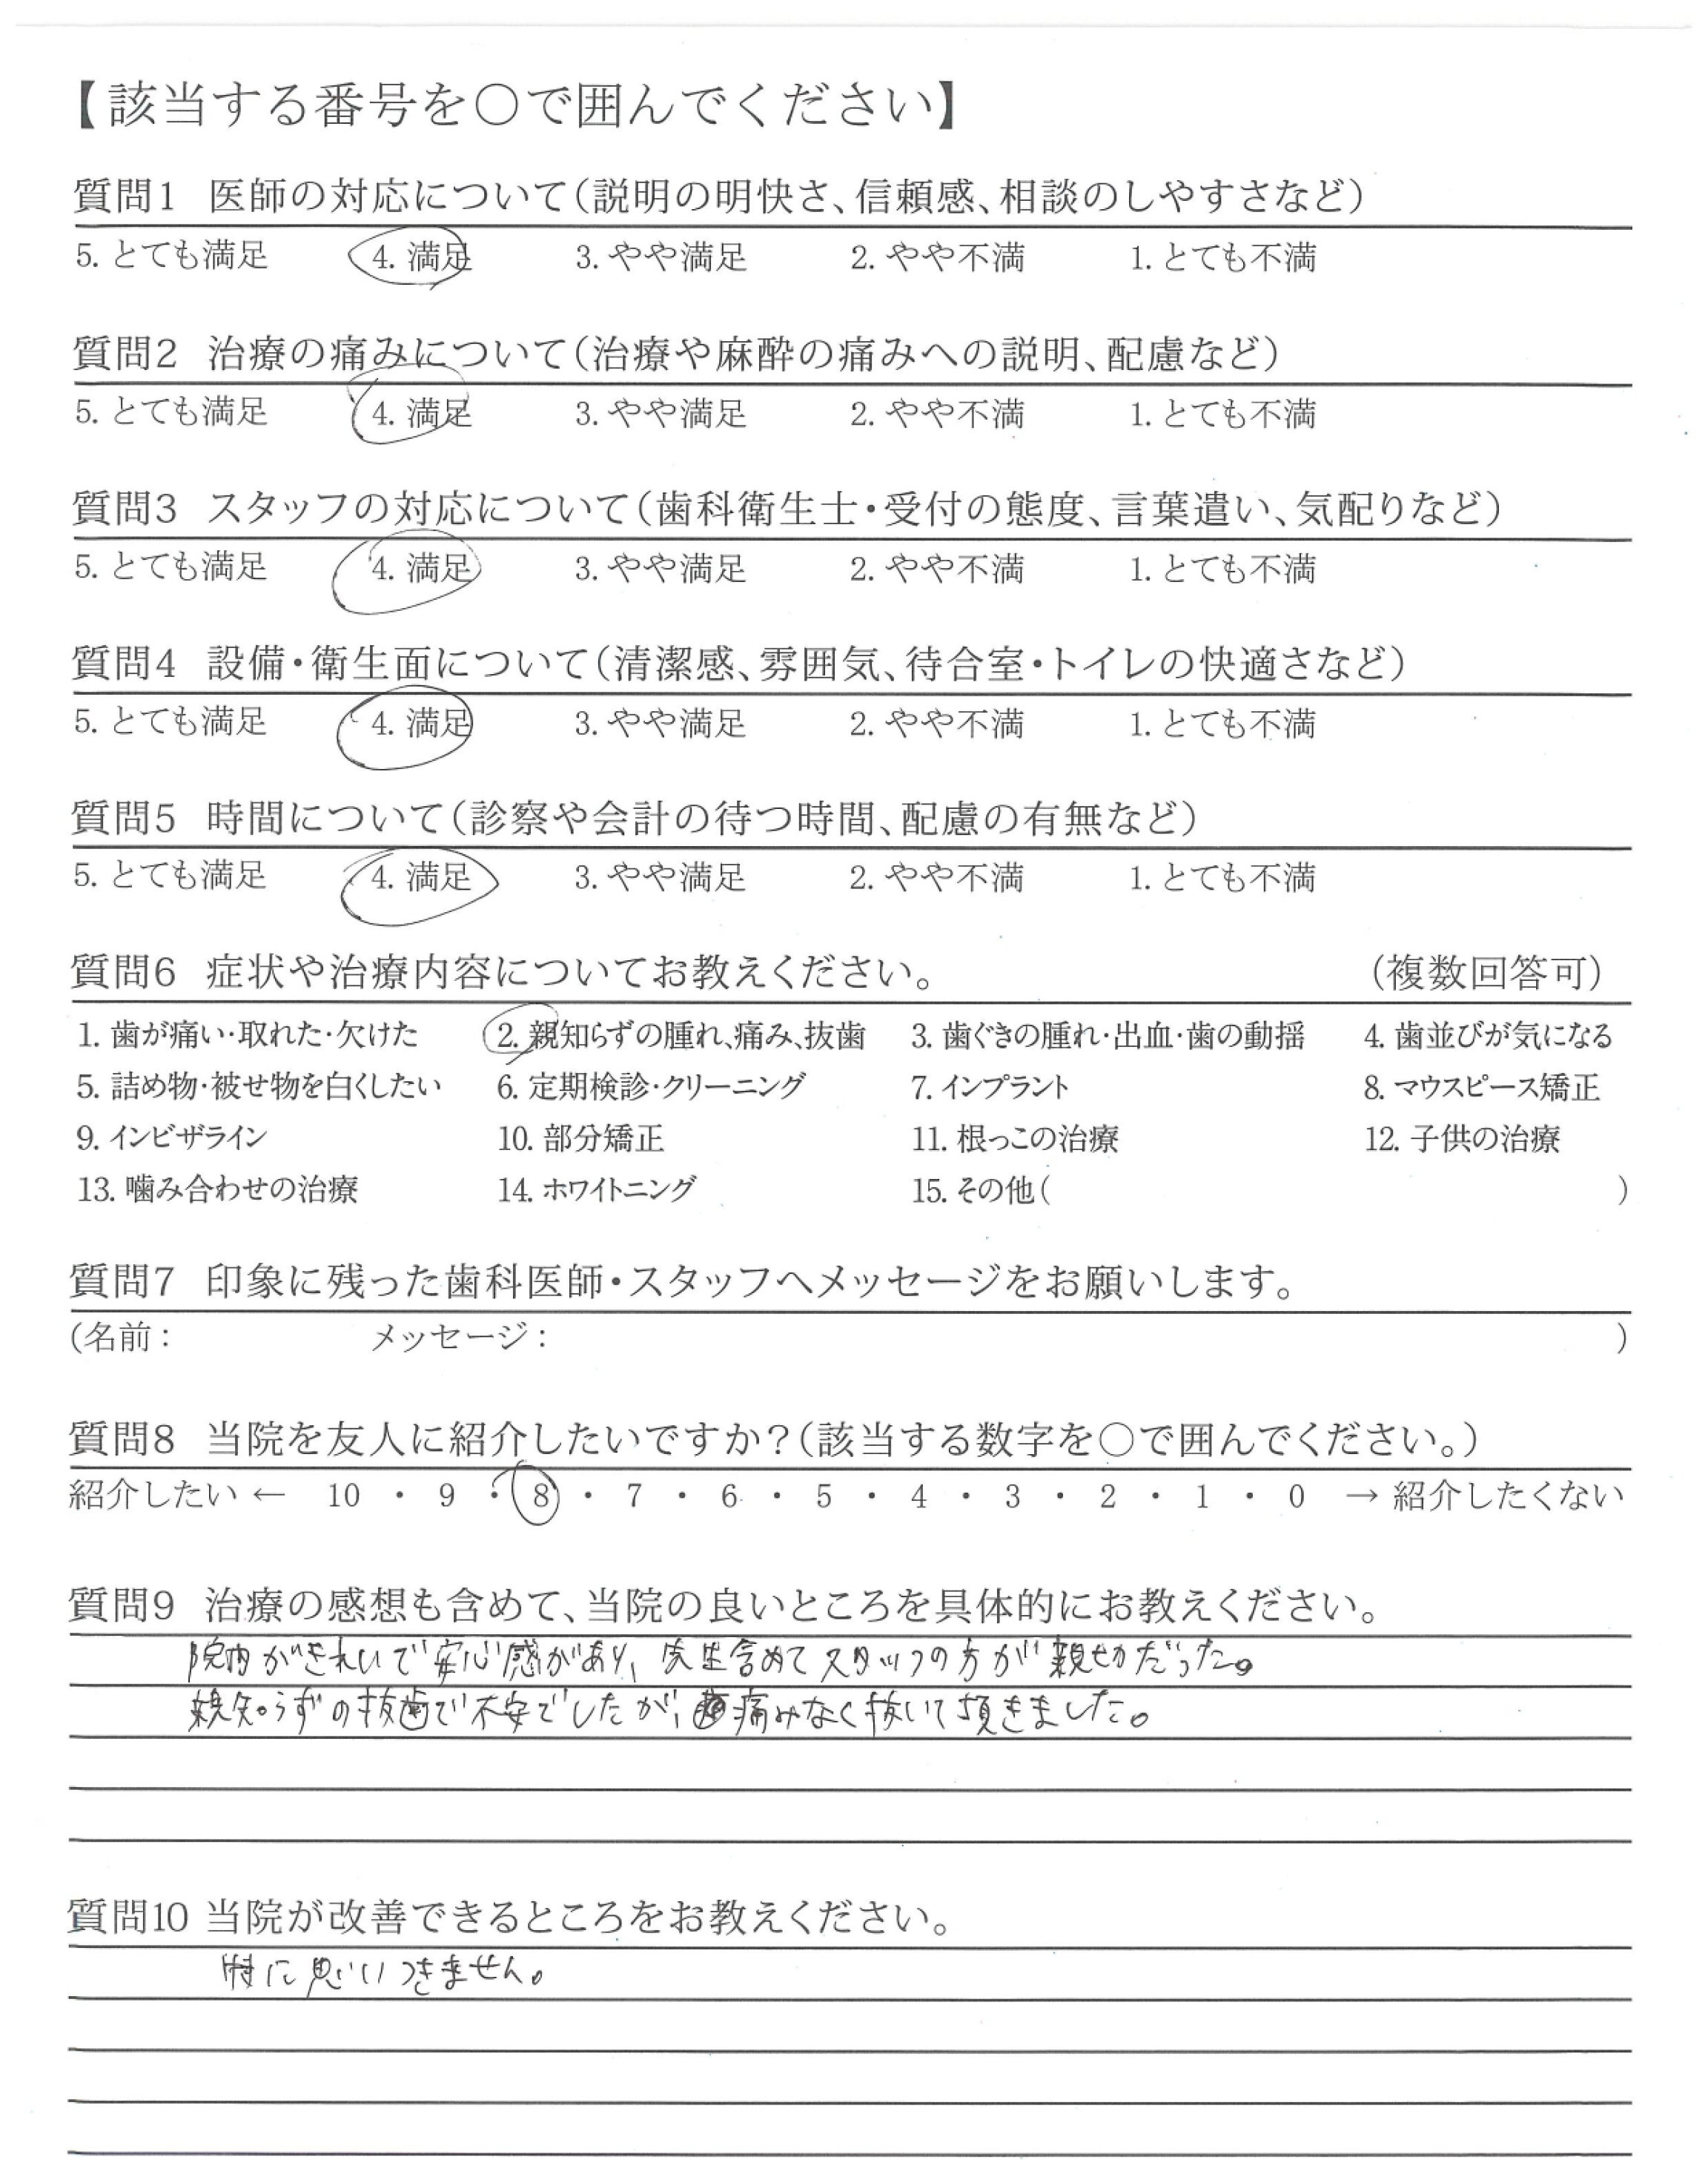 【該当する番号を〇で囲んでください】
質問1 医師の対応について(説明の明快さ、信頼感、相談のしやすさなど)
5. とても満足 4. 満足 3. やや満足 2. やや不満 1. とても不満
質問2 治療の痛みについて(治療や麻酔の痛みへの説明、配慮など)
5. とても満足 4. 満足 3. やや満足 2. やや不満 1. とても不満
質問3 スタッフの対応について(歯科衛生士・受付の態度、言葉遣い、気配りなど)
5. とても満足 4. 満足 3. やや満足 2. やや不満 1. とても不満
質問4 設備・衛生面について(清潔感、雰囲気、待合室・トイレの快適さなど)
5. とても満足 4. 満足 3. やや満足 2. やや不満 1. とても不満
質問5 時間について(診察や会計の待つ時間、配慮の有無など)
5. とても満足 4. 満足 3. やや満足 2. やや不満 1. とても不満
質問6 症状や治療内容についてお教えください。 (複数回答可)
1. 歯が痛い・取れた・欠けた 2. 親知らずの腫れ、痛み、抜歯 3. 歯ぐきの腫れ・出血・歯の動揺 4. 歯並びが気になる
5. 詰め物・被せ物を白くしたい 6. 定期検診・クリーニング 7. インプラント 8. マウスピース矯正
9. インビザライン 10. 部分矯正 11. 根っこの治療 12. 子供の治療
13. 噛み合わせの治療 14. ホワイトニング 15. その他( )
質問7 印象に残った歯科医師・スタッフへメッセージをお願いします。
(名前: メッセージ: )
質問8 当院を友人に紹介したいですか?(該当する数字を〇で囲んでください。)
紹介したい ← 10 ・ 9 ・ 8 ・ 7 ・ 6 ・ 5 ・ 4 ・ 3 ・ 2 ・ 1 ・ 0 → 紹介したくない
質問9 治療の感想も含めて、当院の良いところを具体的にお教えください。
院内がきれいで安心感があり、先生含めてスタッフの方が親切だった。
親知らずの抜歯で不安でしたが、痛みなく抜いて頂きました。
質問10 当院が改善できるところをお教えください。
特に思いつきません。